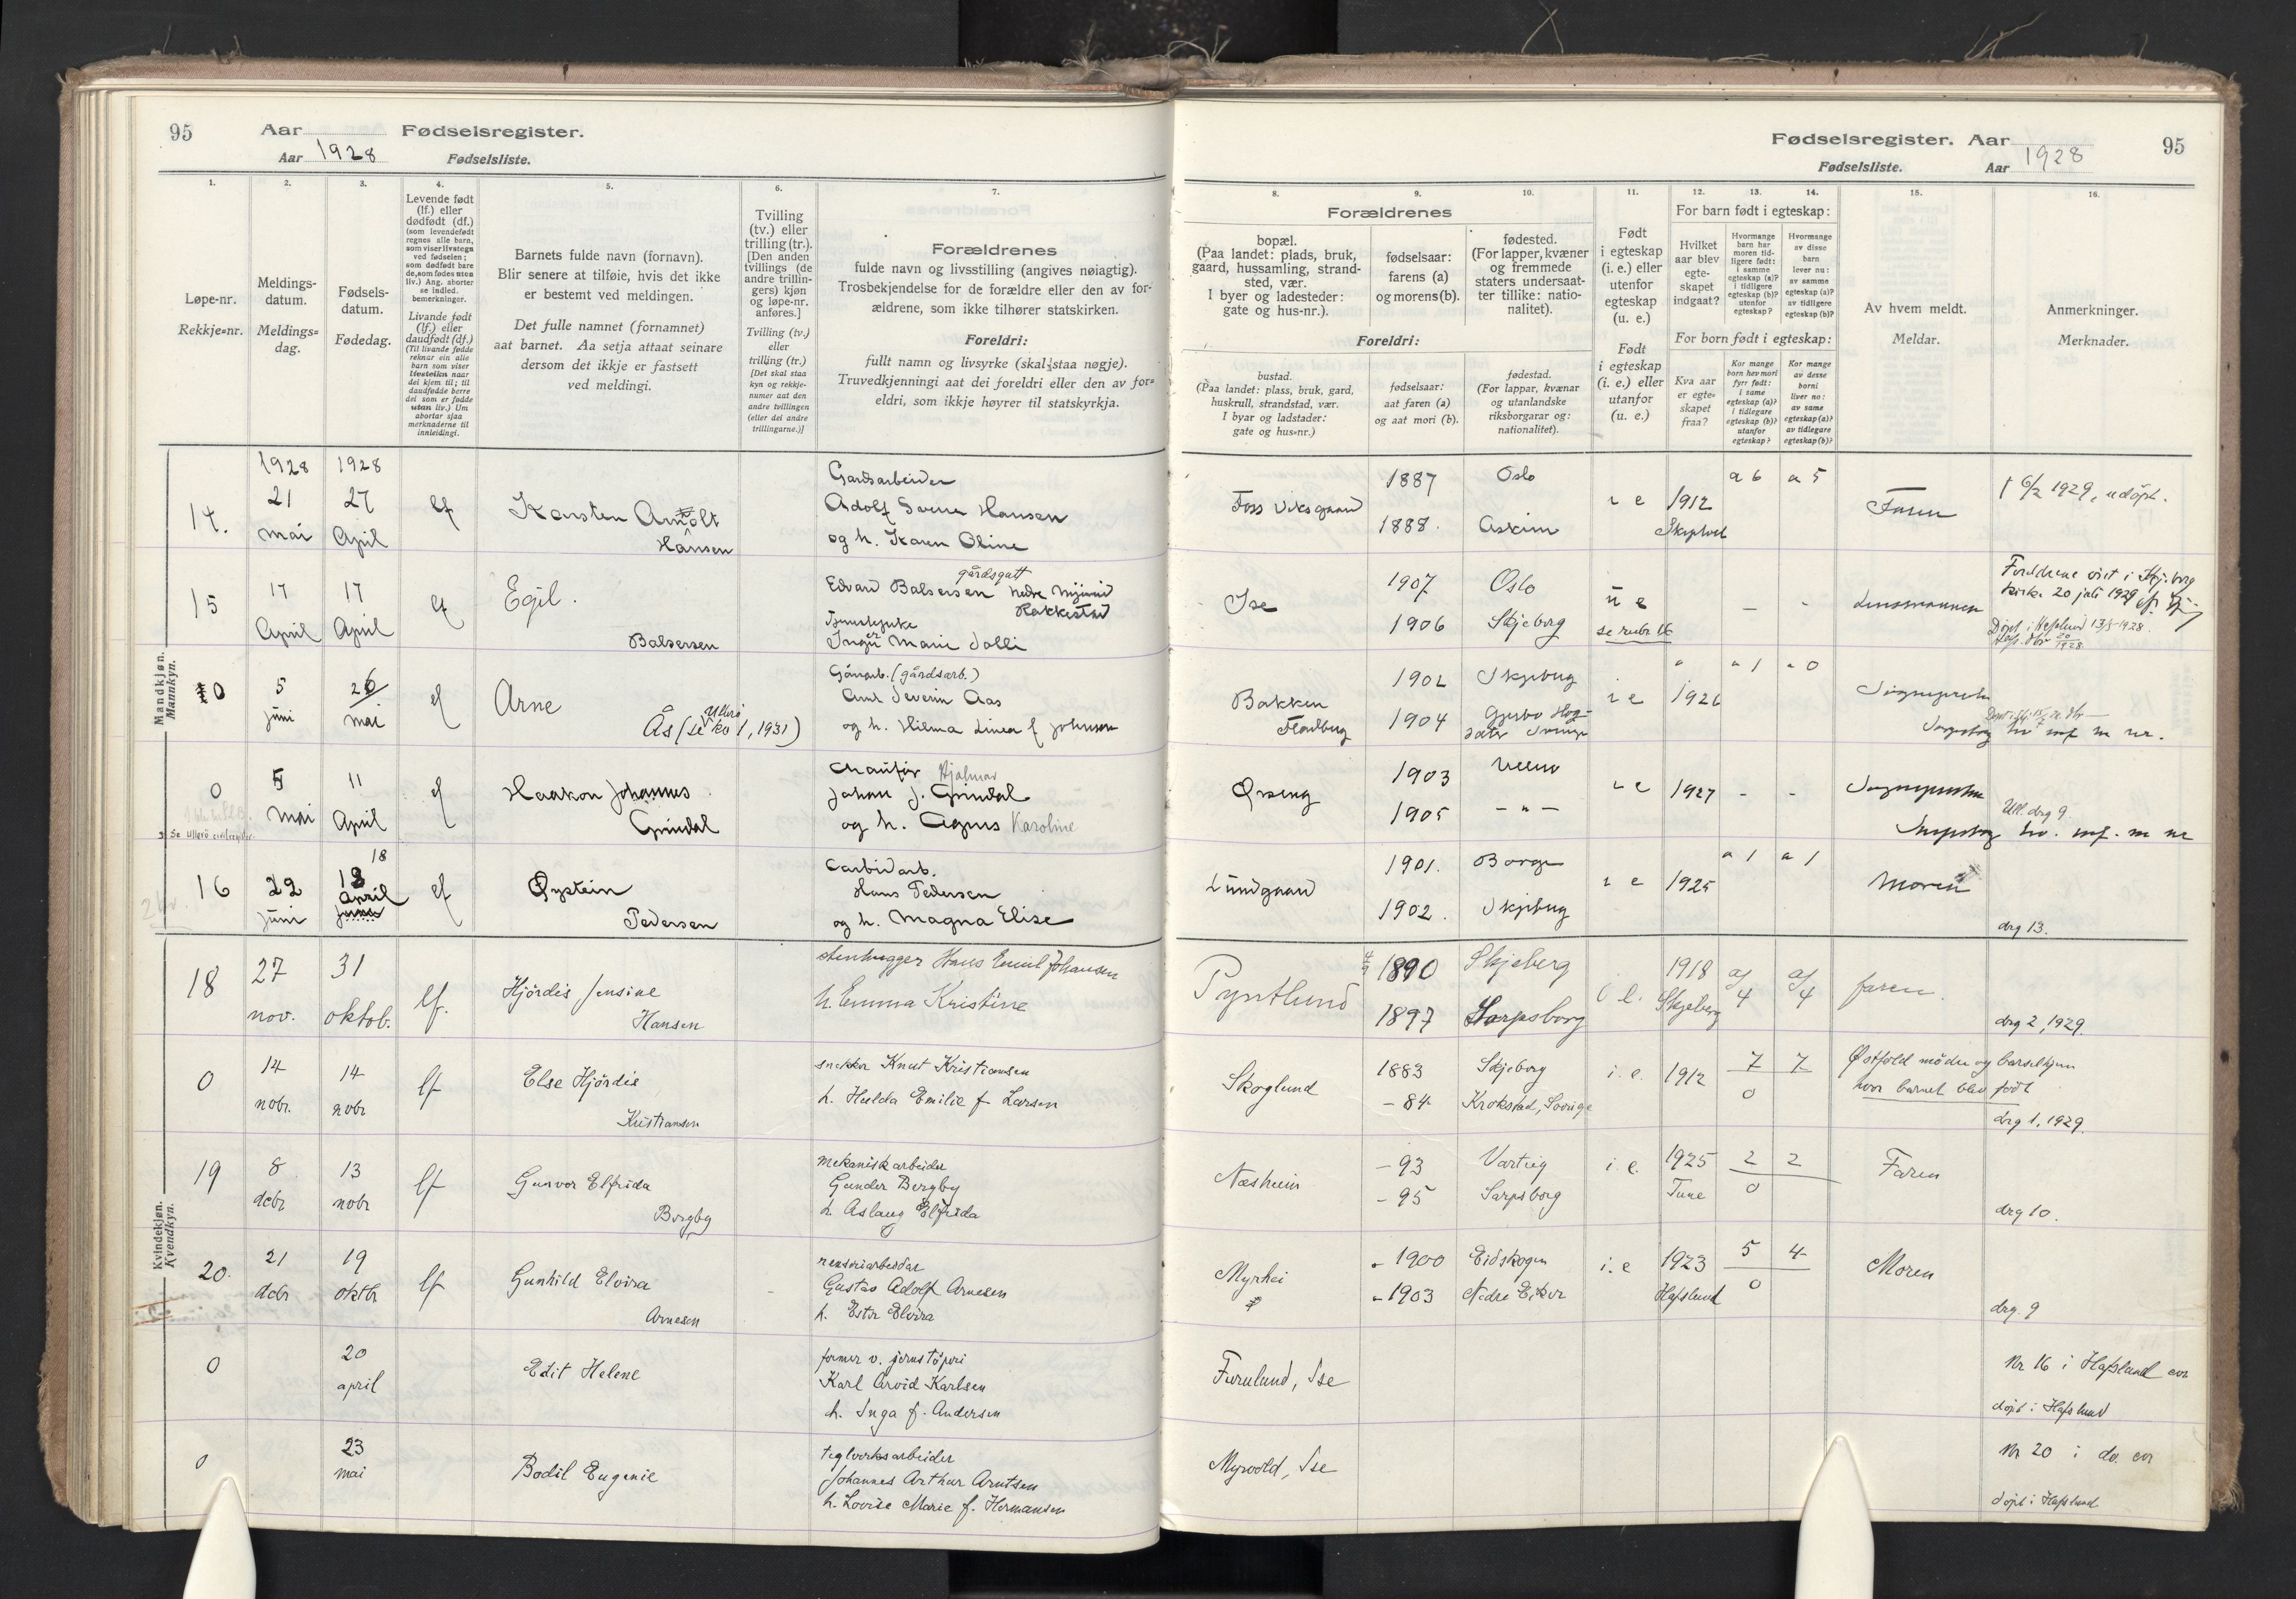 95
Aar Fødselsregister.
Aar 1928 Fødselsliste.
1. 2. 3. 4. 5. 6. 7.
Løpe-nr.
Rekkje=nr.
Meldings-
datum.
Meldings=
dag.
Fødsels-
datum.
Fødedag.
Levende født
(lf.) eller
dødfødt (df.)
(som levendefødt
regnes alle barn,
som viser livstegn
ved fødselen;
som dødfødt bare
de, som fødes uten
liv.) Ang. aborter
se indled.
bemerkninger.
Livande født
(lf.) eller
daudfødt (df.)
(Til livande fødde
reknar ein alle
barn som viser
livsteikn naar
dei kjem til; til
daudfødde berre
dei som er fødde
utan liv.) Um
abortar sjaa
merknaderne til
innleidingi.
Barnets fulde navn (fornavn).
Blir senere at tilføie, hvis det ikke
er bestemt ved meldingen.
Det fulle namnet (fornamnet)
aat barnet. Aa setja attaat seinare
dersom det ikkje er fastsett
ved meldingi.
Tvilling
(tv.) eller
trilling (tr.).
[Den anden
tvillings (de
andre trillin-
gers) kjøn
og løpe-nr.
anføres.]
Tvilling (tv.)
eller
trilling (tr.)
[Det skal staa
kyn og rekkje-
numer aat den
andre tvillingen
(eller dei andre
trillingarne.)]
Forældrenes
fulde navn og livsstilling (angives nøiagtig).
Trosbekjendelse for de forældre eller den av for-
ældrene, som ikke tilhører statskirken.
Foreldri:
fullt namn og livsyrke (skal staa nøgje).
Truvedkjenningi aat dei foreldri eller den av for=
eldri, som ikkje høyrer til statskyrkja.
Mandkjøn.
Mannkyn.
14.
1928
21
mai
1928
27
April
lf
Karsten Arnolt
Hansen
Gardsarbeider
Adolf Hansen
og h. Karen Oline
15
17
April
17
April
lf
Egil.
Balsersen
gårdsgutt
Edvard Balsersen nedre
Rakkestad
Tjenestepike
Inger Marie
0
5
juni
26
mai
lf
Arne
Ullerø
Ås (se kb 1, 1931)
(gårdsarb.)
Severin Aas
og h. Hilma Linea f Johnsen
0
5
mai
Se Ullerø
11
April
lf
Haakon Johannes
Grindal
Chauffør Hjalmar
Johan J. Grindal
og h. Agnes Karoline
16
22
juni
18
18
April
lf
Øystein
Pedersen
Carbidarb.
Hans Pedersen
og h. Magna Elise
Kvindekjøn.
Kvendkyn.
18
27
nov.
31
oktob.
lf.
Hjördis Jensine
Hansen
stenhugger Hans Emil Johansen
h. Emma Kristine
0
14
nobr.
14
nobr
lf
Else Hjördis
Kristiansen
snekker Knut Kristiansen
h. Hulda Emilie f Larsen
19
8
dcbr
13
nobr
lf
Gunvor Elfrida
Bergby
mekanisk arbeider
Gunder Bergby
h. Aslaug Elfrida
20.
21
dcbr
19
oktbr
lf
Gunhild Elvira
Arnesen
renseriarbeider
Gustav Adolf Arnesen
h. Ester Elvira
0
20
april
Edit Helene
former v. jernstöperi
Karl Arvid Karlsen
h. Inga f. Andersen
0
23
mai
Bodil Eugenie
teglverksarbeider
Johannes Arthur Arntsen
h. Lovise Marie f. Hermansen
Fødselsregister. Aar 95
Fødselsliste. Aar 1928
8. 9. 10. 11. 12. 13. 14. 15. 16.
Forældrenes
bopæl.
(Paa landet: plads, bruk,
gaard, hussamling, strand-
sted, vær.
I byer og ladesteder:
gate og hus-nr.).
fødselsaar:
farens (a)
og morens (b).
fødested.
(For lapper, kvæner
og fremmede
staters undersaat-
ter tillike: natio-
nalitet).
Foreldri:
bustad.
(Paa landet: plass, bruk, gard,
huskrull, strandstad, vær.
I byar og ladstader:
gate og hus=nr.)
fødselsaar:
aat faren (a)
og aat mori (b).
fødestad.
(For lappar, kvænar
og utanlandske
riksborgarar og:
nationalitet).
Født
i egteskap
(i. e.) eller
utenfor
egteskap
(u. e.)
Født
i egteskap
(i. e.) eller
utanfor
(u. e.)
For barn født i egteskap:
Hvilket
aar blev
egte-
skapet
indgaat?
Hvormange
barn har
moren tid-
ligere født:
i samme
egteskap (a)?
i tidligere
egteskap (b)?
utenfor
egteskap?
Hvormange
av disse
barn
lever nu:
av samme
egteskap (a)?
av tidligere
egteskap (b)?
For born født i egteskap:
Kva aar
er egte=
skapet
fraa?
Kor mange
born hev mori
fyrr født:
i same
egteskap (a)?
i tidlegare
egteskap (b)?
utanfor
egteskap?
Kor mange
av desse
borni
liver no:
av same
egteskap (a)?
av tidlegare
egteskap (b)?
Av hvem meldt.
Meldar.
Anmerkninger.
Merknader.
Foss Viksgaard
1887
1888.
Oslo
Askim
i e
1912
Skiptvet
a 6
a 5
Faren
† 6/2 1929, udöpt.
Ise
1907
1906
Oslo
Skjeberg
u e
se rubr 16
–
-
Lensmannen
Foreldrene viet i Skjeberg
kirke 20 juli 1929
Döpt i Hafslund 13/5 1928.
Bakken
1902
1904
Skjeberg
i e
1926
a 1
a 0
m nr.
Ørseng
1903
1905
Ullerø
– " –
i e
1927
-
-
Ull. drg 9
m nr
Lundgaard
1901.
1902.
Borge
Skjeberg
i e
1925
a 1
a 1
Moren
drg 13.
Pyntlund
1890
1897
Skjeberg
Sarpsborg
1918
Skjeberg
a/4
a/4
faren.
drg 2, 1929.
Skoglund
1883
– 84
Skjeberg
Krokstad, Sverige
i. e.
1912
7
0
7
Østfold mödre og barselhjem
hvor barnet blev födt
drg 1, 1929.
Næsheim
– 93
– 95
Varteig
Sarpsborg
i. e.
1925
Tune
2
0
2
Faren
drg 10.
Myrhei
- 1900
- 1903
Eidskogen
Nedre Eiker
i. e
1923
Hafslund
5
0
4
Moren
drg. 9
Furulund, Ise
Nr 16 i Hafslund
döpt i Hafslund
Myrvold, Ise
Nr 20 i do.
döpt i Hafslund